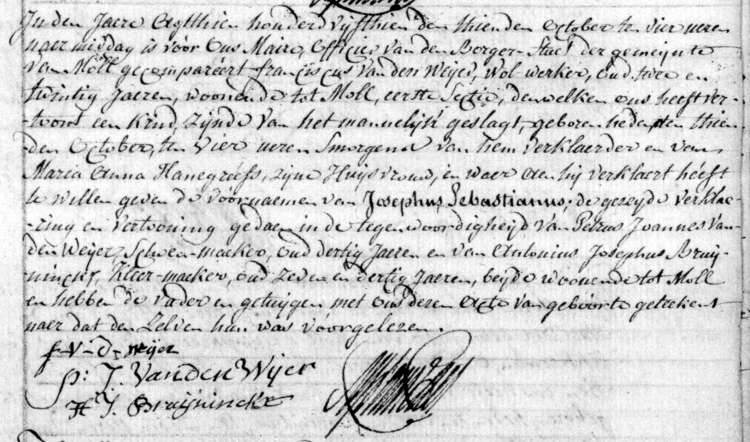 In den Jaere Agtthien honderd vyfthien den thienden October te vier ueren
naer middag is vóór Ons Maire, Officier van den Borger-Staet der gemeynte
van Moll gecompareért franciscus Vanden Weyer, Wol-werker, Oud twee en
twintig Jaeren, woonende tot Moll, eerste Sectie, den welken ons heeft ver-
-toont een Kind, Zynde van het mannelyk geslagt, geboren heden den thien-
den October, te vier ueren Smorgens van hem verklaerder en van
Maria Anna Hanegreéfs, Zyne Huysvrouw, en waer aen hy verklaert heeft
te willen geven de voornaemen van Josephus Sebastianus; de gezeyde verklae-
-ring en vertooning gedaen in de tegenwoordigheyd van Petrus Joannes Van-
den Weyer, Schoen-macker, oud dertig Jaeren en van Antonius Josephus Bruy-
ninckx, Kleer-macker, oud Zeven en dertig Jaeren, beyde woonende tot Moll
en hebben de Vader en getuygen met Ons dezen Acte van geboorte geteekent
naer dat den Zelven hun was voorgelezen.
f. V. D. Weijer
P: J. VandenWijer
J. Bruyninckx